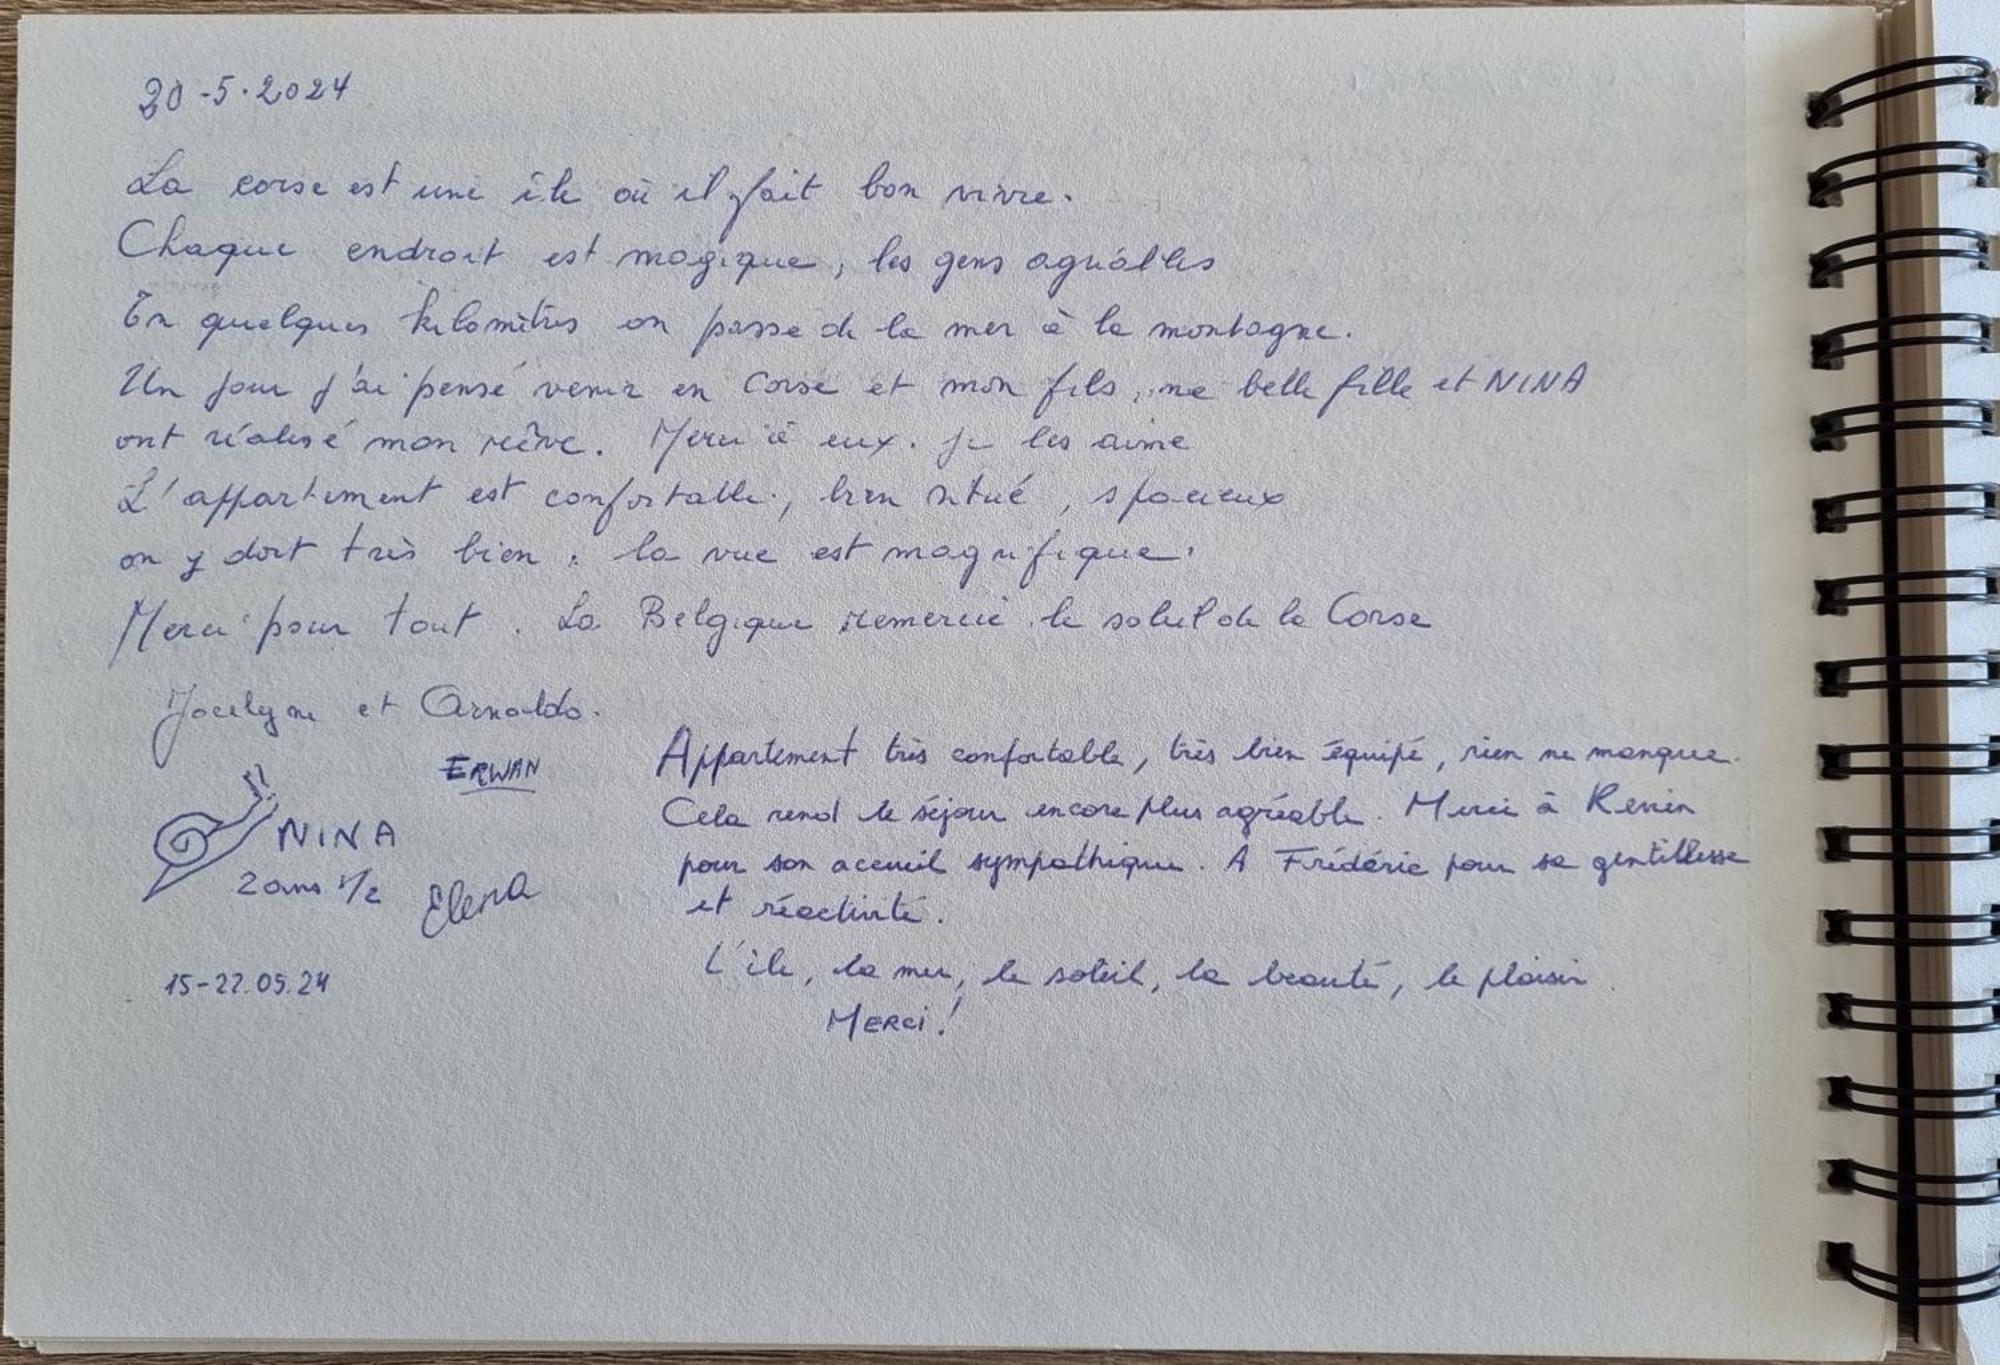 20-5-2024
La corse est une île où il fait bon vivre.
Chaque endroit est magique, les gens agréables
En quelques kilomètres on passe de la mer à la montagne.
Un jour j'ai pensé venir en Corse et mon fils, ma belle fille et NINA
ont réalisé mon rêve. Merci à eux. Je les aime
L'appartement est confortable, bien situé, spacieux
on y dort très bien, la vue est magnifique.
Merci pour tout. La Belgique remercie le soleil de la Corse
Jocelyne et Arnoldo.
ERWAN
NINA
2 ans 1/2
Elena
15-22.05.24
Appartement très confortable, très bien équipé, rien ne manque.
Cela rend le séjour encore plus agréable. Merci à
pour son acceuil sympathique. A Frédéric pour sa gentillesse
et réactivité.
L'île, la mer, le soleil, la beauté, le plaisir.
MERCi!